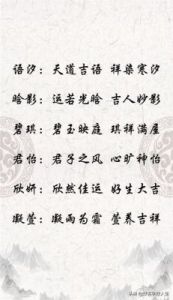 语汐：天道吉语 祥染寒汐
晗影：运若光晗 吉人妙影
碧琪：碧玉映庭 琪祥满屋
君怡：君子之风 心旷神怡
欣妍：欣然佳运 好生大吉
凝萱：凝雨为霜 萱养吉祥